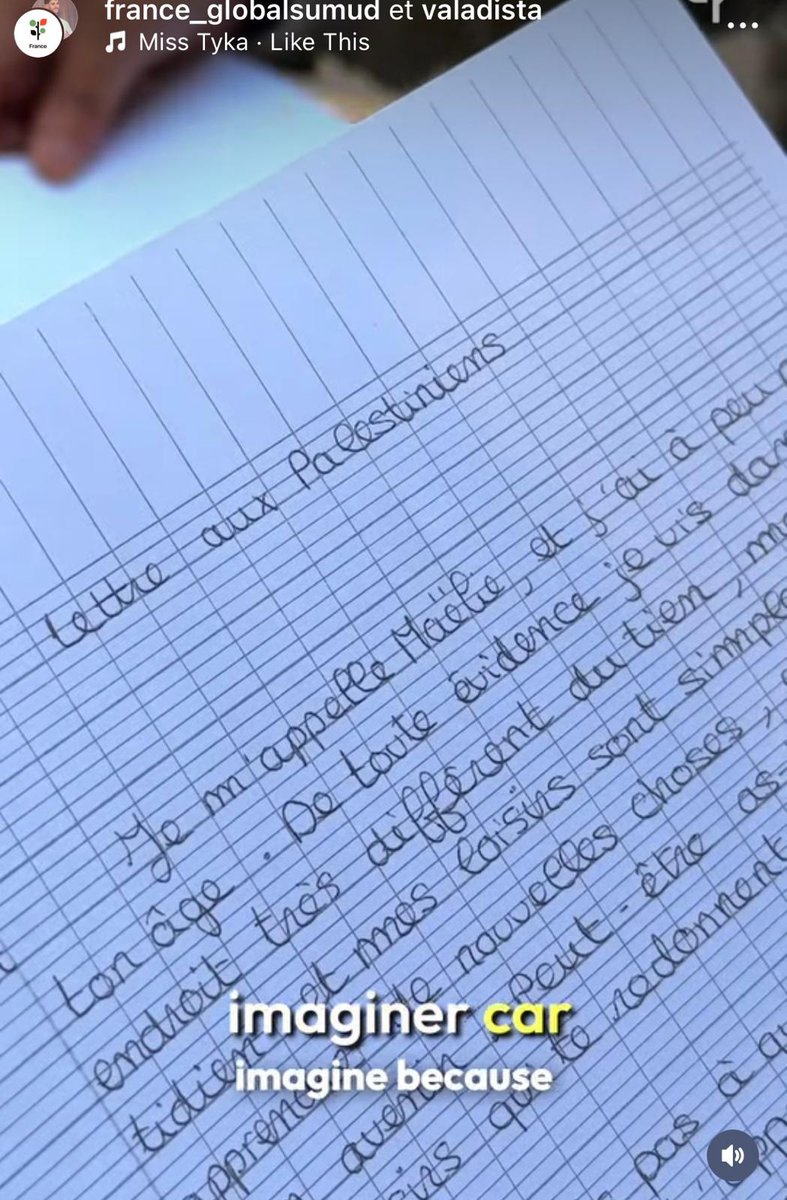 france_globalsumud et valadista
Miss Tyka · Like This
France
Lettre aux Palestiniens
Je m'appelle Maëlie, et j'ai à peu
ton âge. De toute évidence je vis dans
endroit très différent du tien,
et mes loisirs sont simple
de nouvelles choses,
Peut-être as-
te redonnent
pas à
imaginer car
imagine because